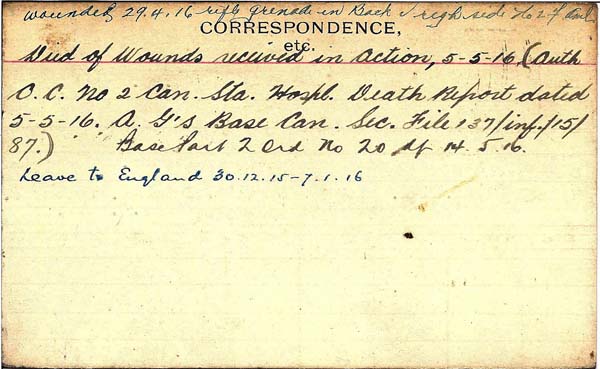 wounded 29.4.16 rifle grenade in Back & right side No 2 F Amb
CORRESPONDENCE,
etc.
Died of Wounds received in Action, 5-5-16. (Auth
O.C. No 2 Can. Sta. Hospl. Death Report dated
5-5-16. A.G's Base Can. Sec. File 137/inf./15/
87.) Base Part 2 Ord No 20 df 14.5.16.
Leave to England 30.12.15-7.1.16